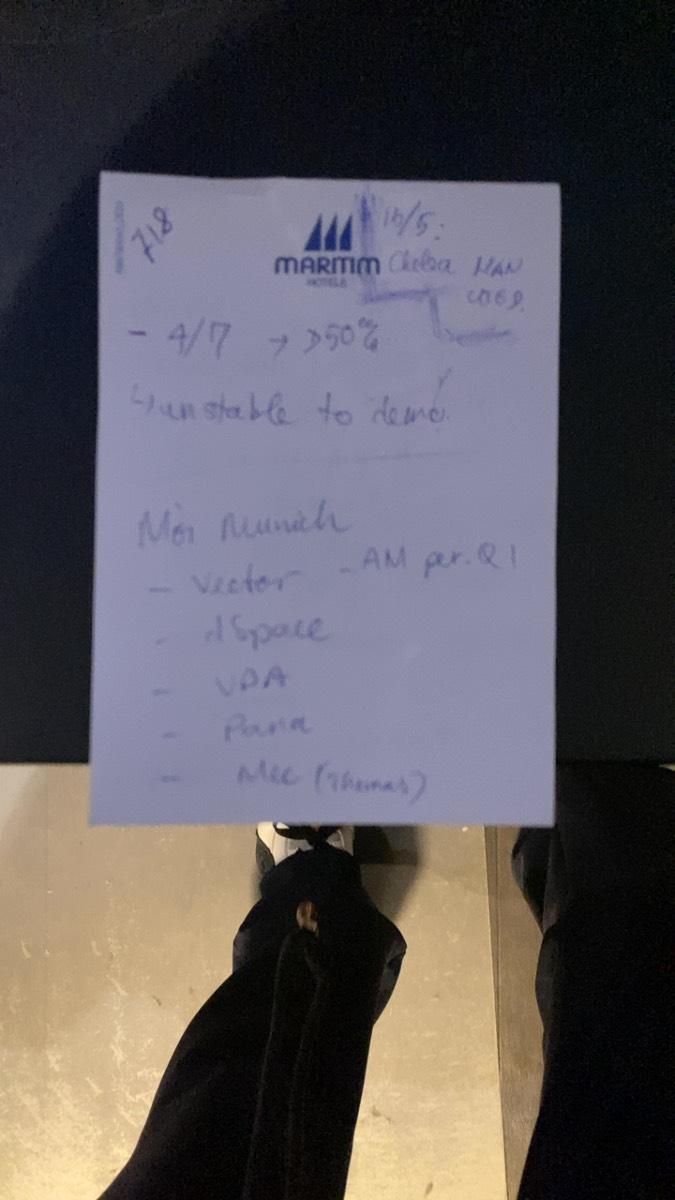 718
MARITIM
HOTELS
16/5:
Chelsea MAN
- 4/7 → >50%
↳ unstable to demo
Mời Munich
- Vector - AM per. Q1
- dSpace
- VDA
- Pana
- Mec (Thomas)